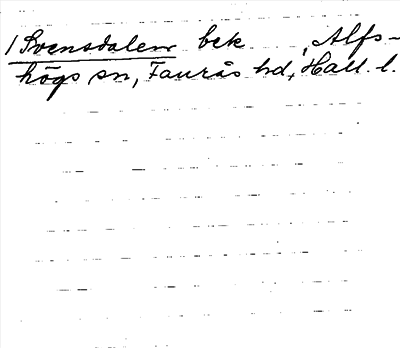 /Svensdalen bck , Alfs-
högs sn, Faurås hd, Hall. l.